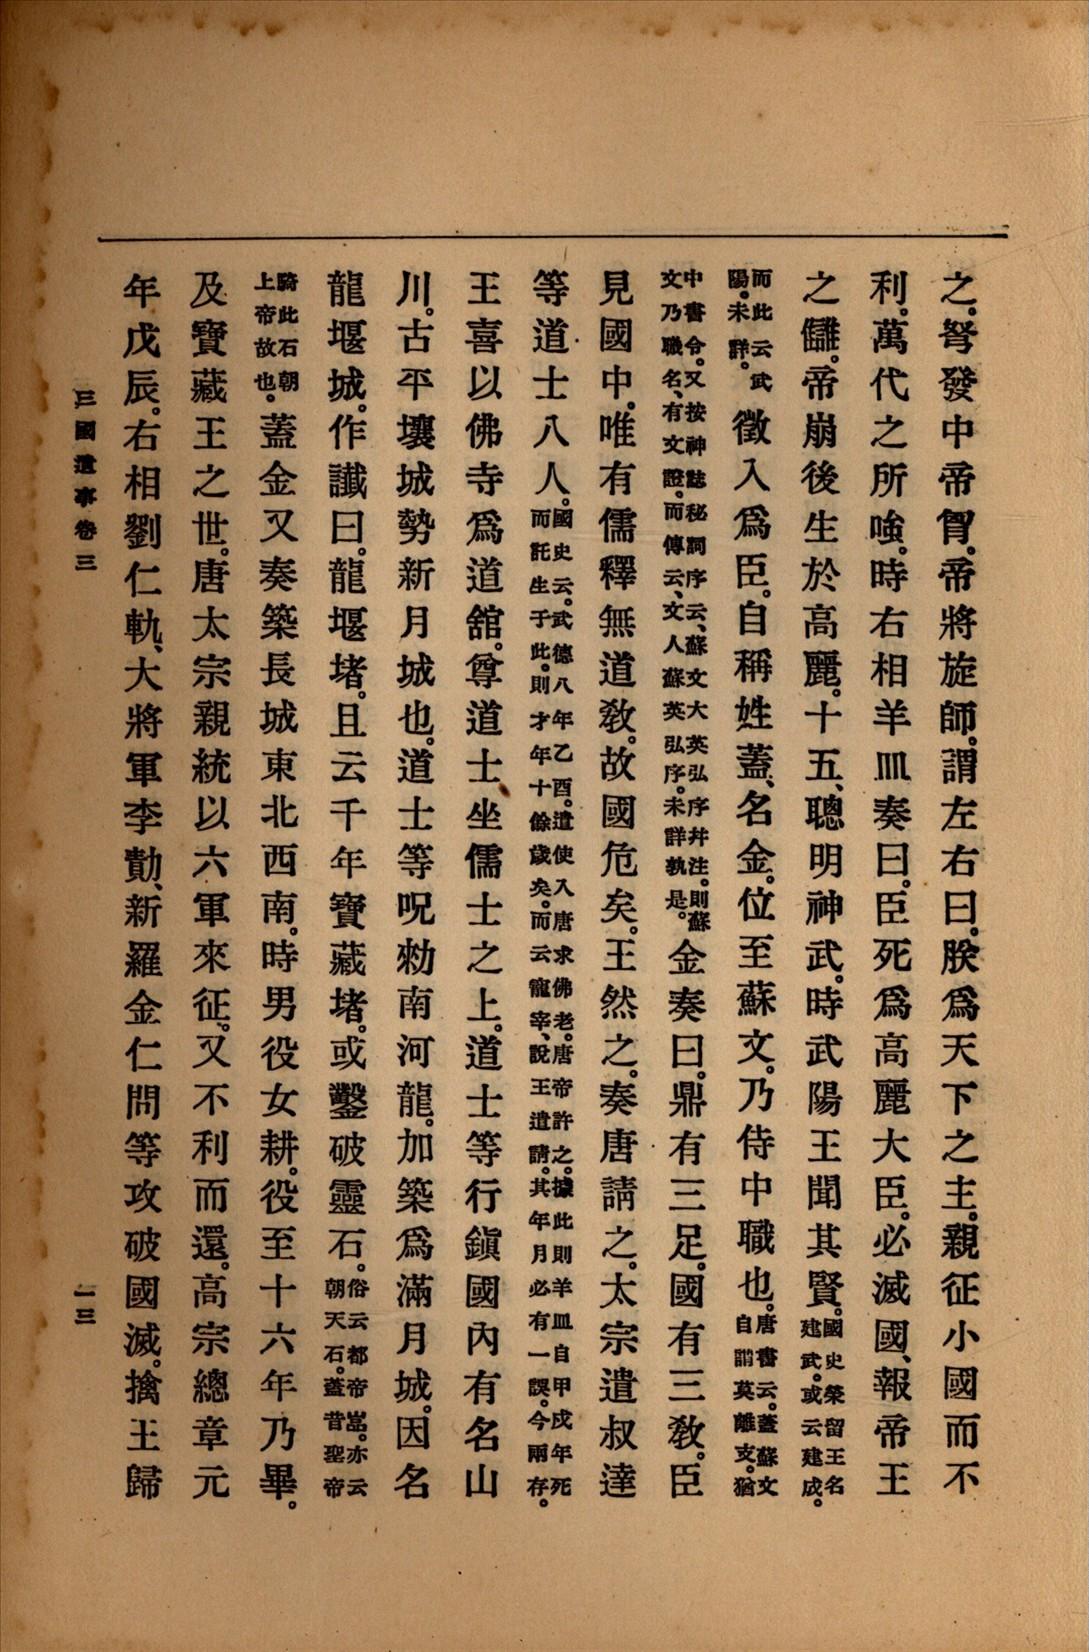 之。弩發中帝胷、帝將旋師。謂左右曰。朕爲天下之主。親征小國而不
利。萬代之所嗤。時右相羊皿奏曰。臣死爲高麗大臣。必滅國、報帝王
之讎。帝崩後生於高麗。十五、聰明神武。時武陽王聞其賢。國史榮留王名建武。或云建成。
而此云武陽。未詳。徵入爲臣。自稱姓蓋、名金。位至蘇文。乃侍中職也。唐書云。蓋蘇文自謂莫離支。猶
中書令。又按神誌秘詞序云、蘇文大英弘序幷注。則蘇文乃職名、有文證。而傳云、文人蘇英弘序。未詳孰是。金奏曰。鼎有三足。國有三敎。臣
見國中。唯有儒釋無道敎。故國危矣。王然之。奏唐請之。太宗遣叔達
等道士八人。國史云。武德八年乙酉。遣使入唐求佛老。唐帝許之。據此則羊皿自甲戌年死而託生于此。則才年十餘歲矣。而云寵宰、說王遣請。其年月必有一誤。今兩存。
王喜以佛寺爲道舘。尊道士坐儒士之上。道士等行鎭國內有名山
川。古平壤城勢新月城也。道士等呪勑南河龍。加築爲滿月城。因名
龍堰城。作讖曰。龍堰堵。且云千年寶藏堵。或鑿破靈石。俗云都帝嵓。亦云朝天石。蓋昔聖帝
騎此石朝上帝故也。蓋金又奏築長城東北西南。時男役女耕。役至十六年乃畢。
及寶藏王之世。唐太宗親統以六軍來征。又不利而還。高宗總章元
年戊辰。右相劉仁軌、大將軍李勣、新羅金仁問等攻破國滅。擒王歸
三國遺事卷三
一三